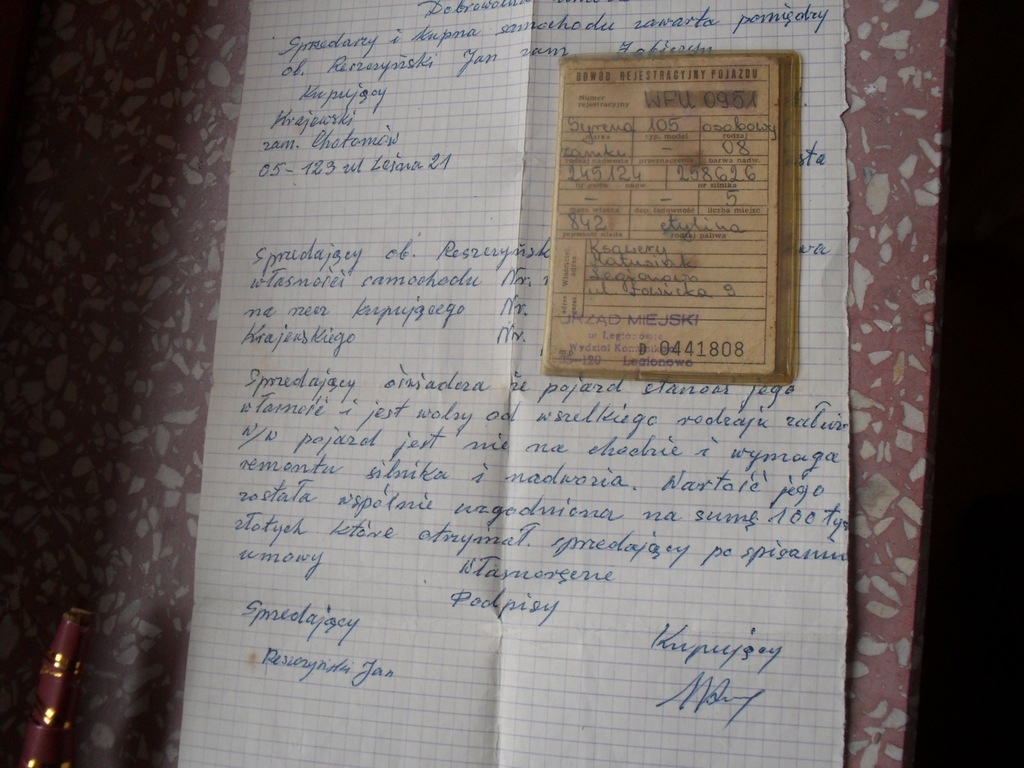 Dobrowolna
Sprzedarzy i kupna samochodu zawarta pomiędzy
ob. Reszczyński Jan zam.
Kupujący
Krajewski
zam. Chotomów
05-123 ul Leśna 21
Sprzedający ob. Reszczyńsk
własności samochodu Nr.
na rzecz kupującego Nr.
Krajewskiego Nr.
Sprzedający oświadcza że pojazd stanowi jego
własność i jest wolny od wszelkiego rodzaju
w/w pojazd jest nie na chodzie i wymaga
remontu silnika i nadwozia. Wartość jego
została wspólnie uzgodniona na sumę 100 tyś
złotych które otrzymał sprzedający po spisaniu
umowy
Własnoręczne
Podpisy
Sprzedający
Kupujący
Reszczyński Jan
DOWÓD REJESTRACYJNY POJAZDU
Numer rejestracyjny WPU 0951
Syrena 105 osobowy
marka typ, model rodzaj
zamkn. - 08
rodzaj nadwozia przeznaczenie barwa nadw.
245124 258626
nr podw. nadw. nr silnika
- - 5
masa własna dop. ładowność liczba miejsc
842 etylina
pojemność silnika rodzaj paliwa
Ksawery
Matusiak
Legionowo
ul. Łowicka 9
URZĄD MIEJSKI
w Legionowie
Wydział Komunikacji
05-120 Legionowo
D 0441808